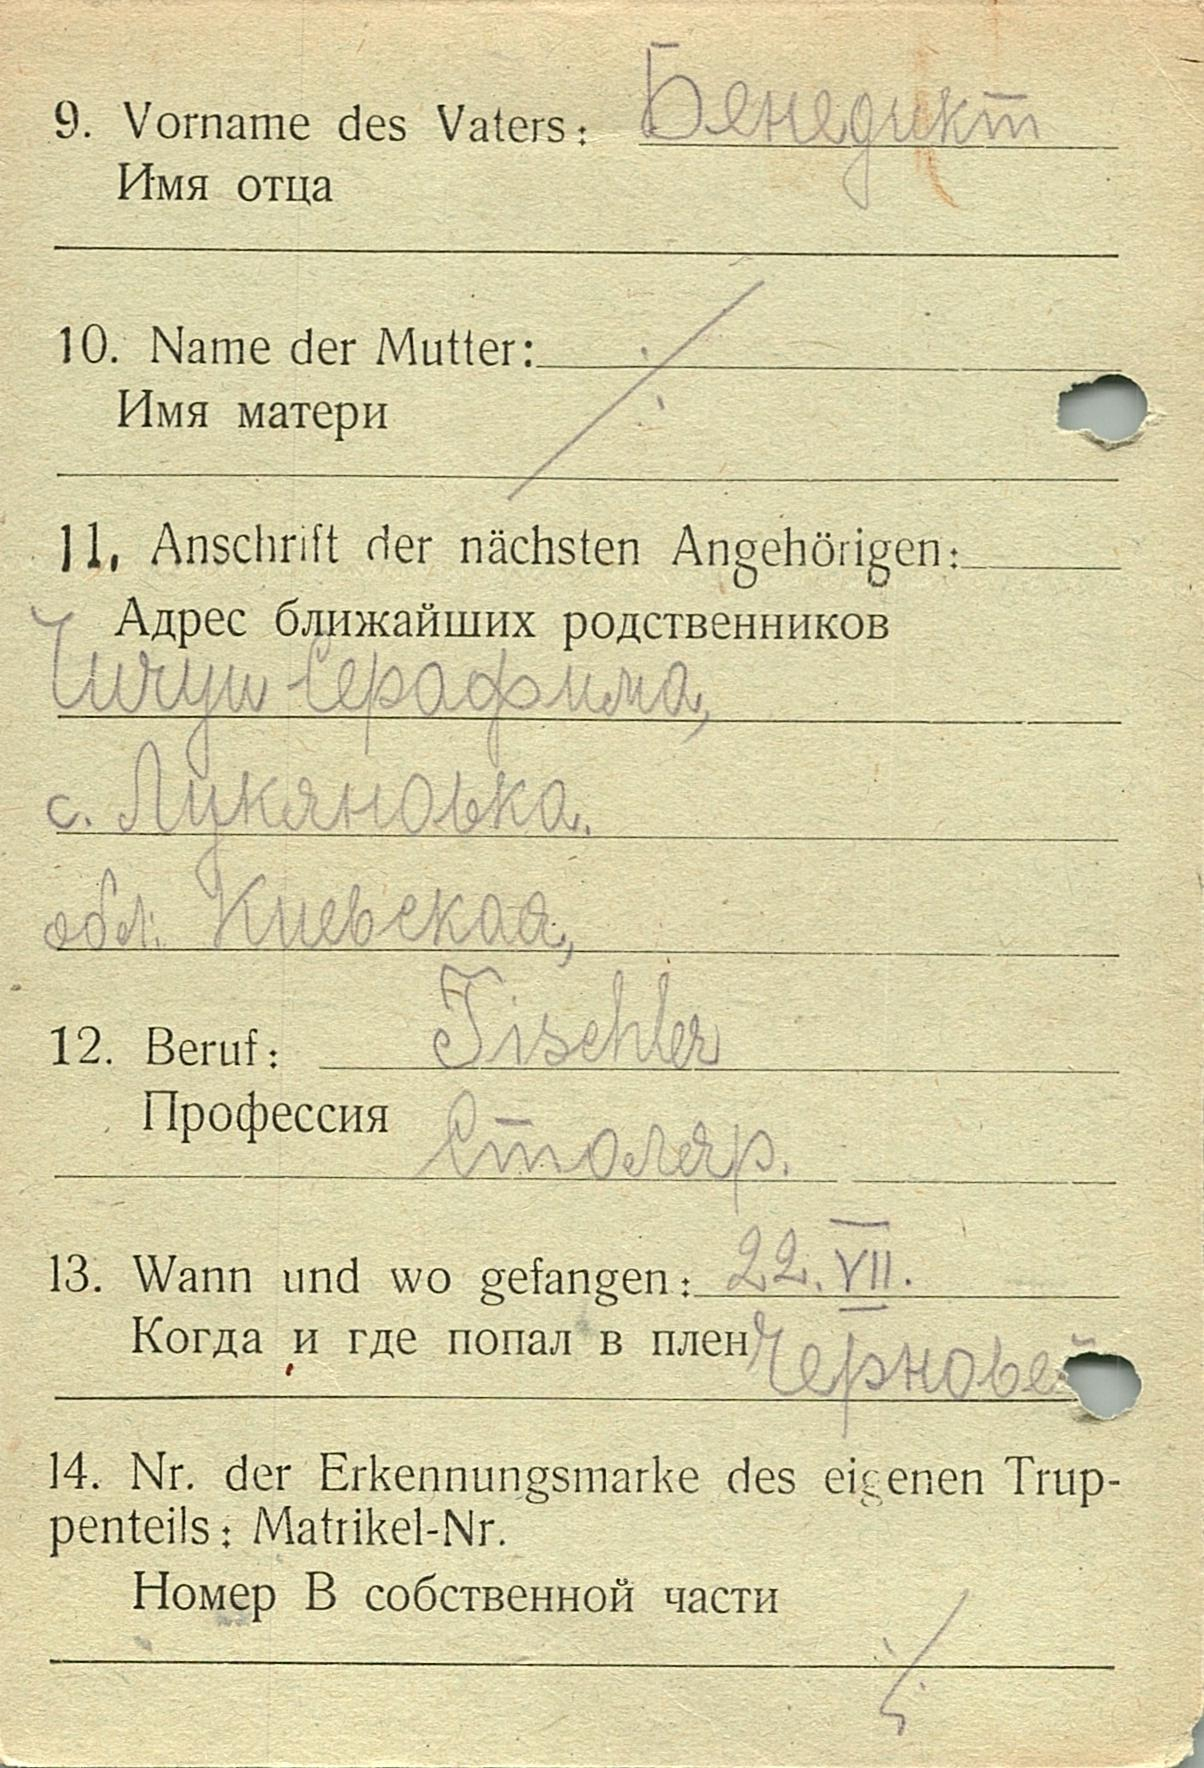 9. Vorname des Vaters: Бенедикт
Имя отца
10. Name der Mutter:
Имя матери
11. Anschrift der nächsten Angehörigen:
Адрес ближайших родственников
Серафима,
с. Лукяновка.
обл. Киевская,
12. Beruf: Tischler
Профессия Столяр.
13. Wann und wo gefangen: 22. VII.
Когда и где попал в плен
14. Nr. der Erkennungsmarke des eigenen Trup-
penteils: Matrikel-Nr.
Номер В собственной части